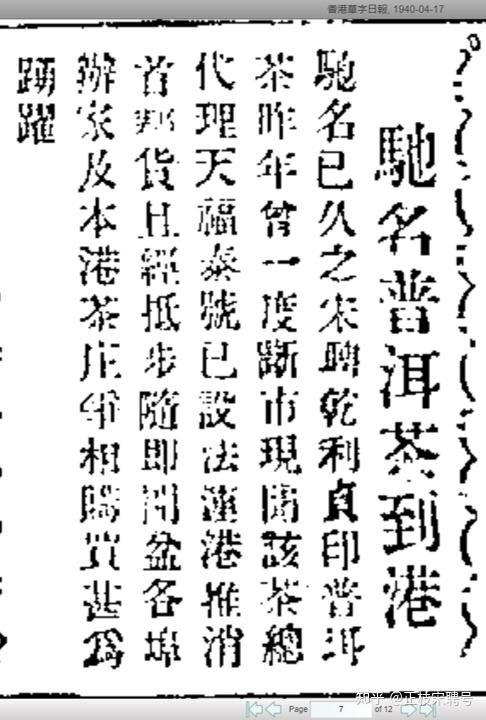 香港華字日報, 1940-04-17
馳名普洱茶到港
馳名已久之宋聘乾利貞印普洱
茶昨年曾一度斷市現聞該茶總
代理天福泰號已設法運港推消
首邦貨且經抵步隨即開盆各埠
辦家及本港茶庄爭相購買甚爲
踴躍
知乎 @正枝宋聘号
Page 7 of 12